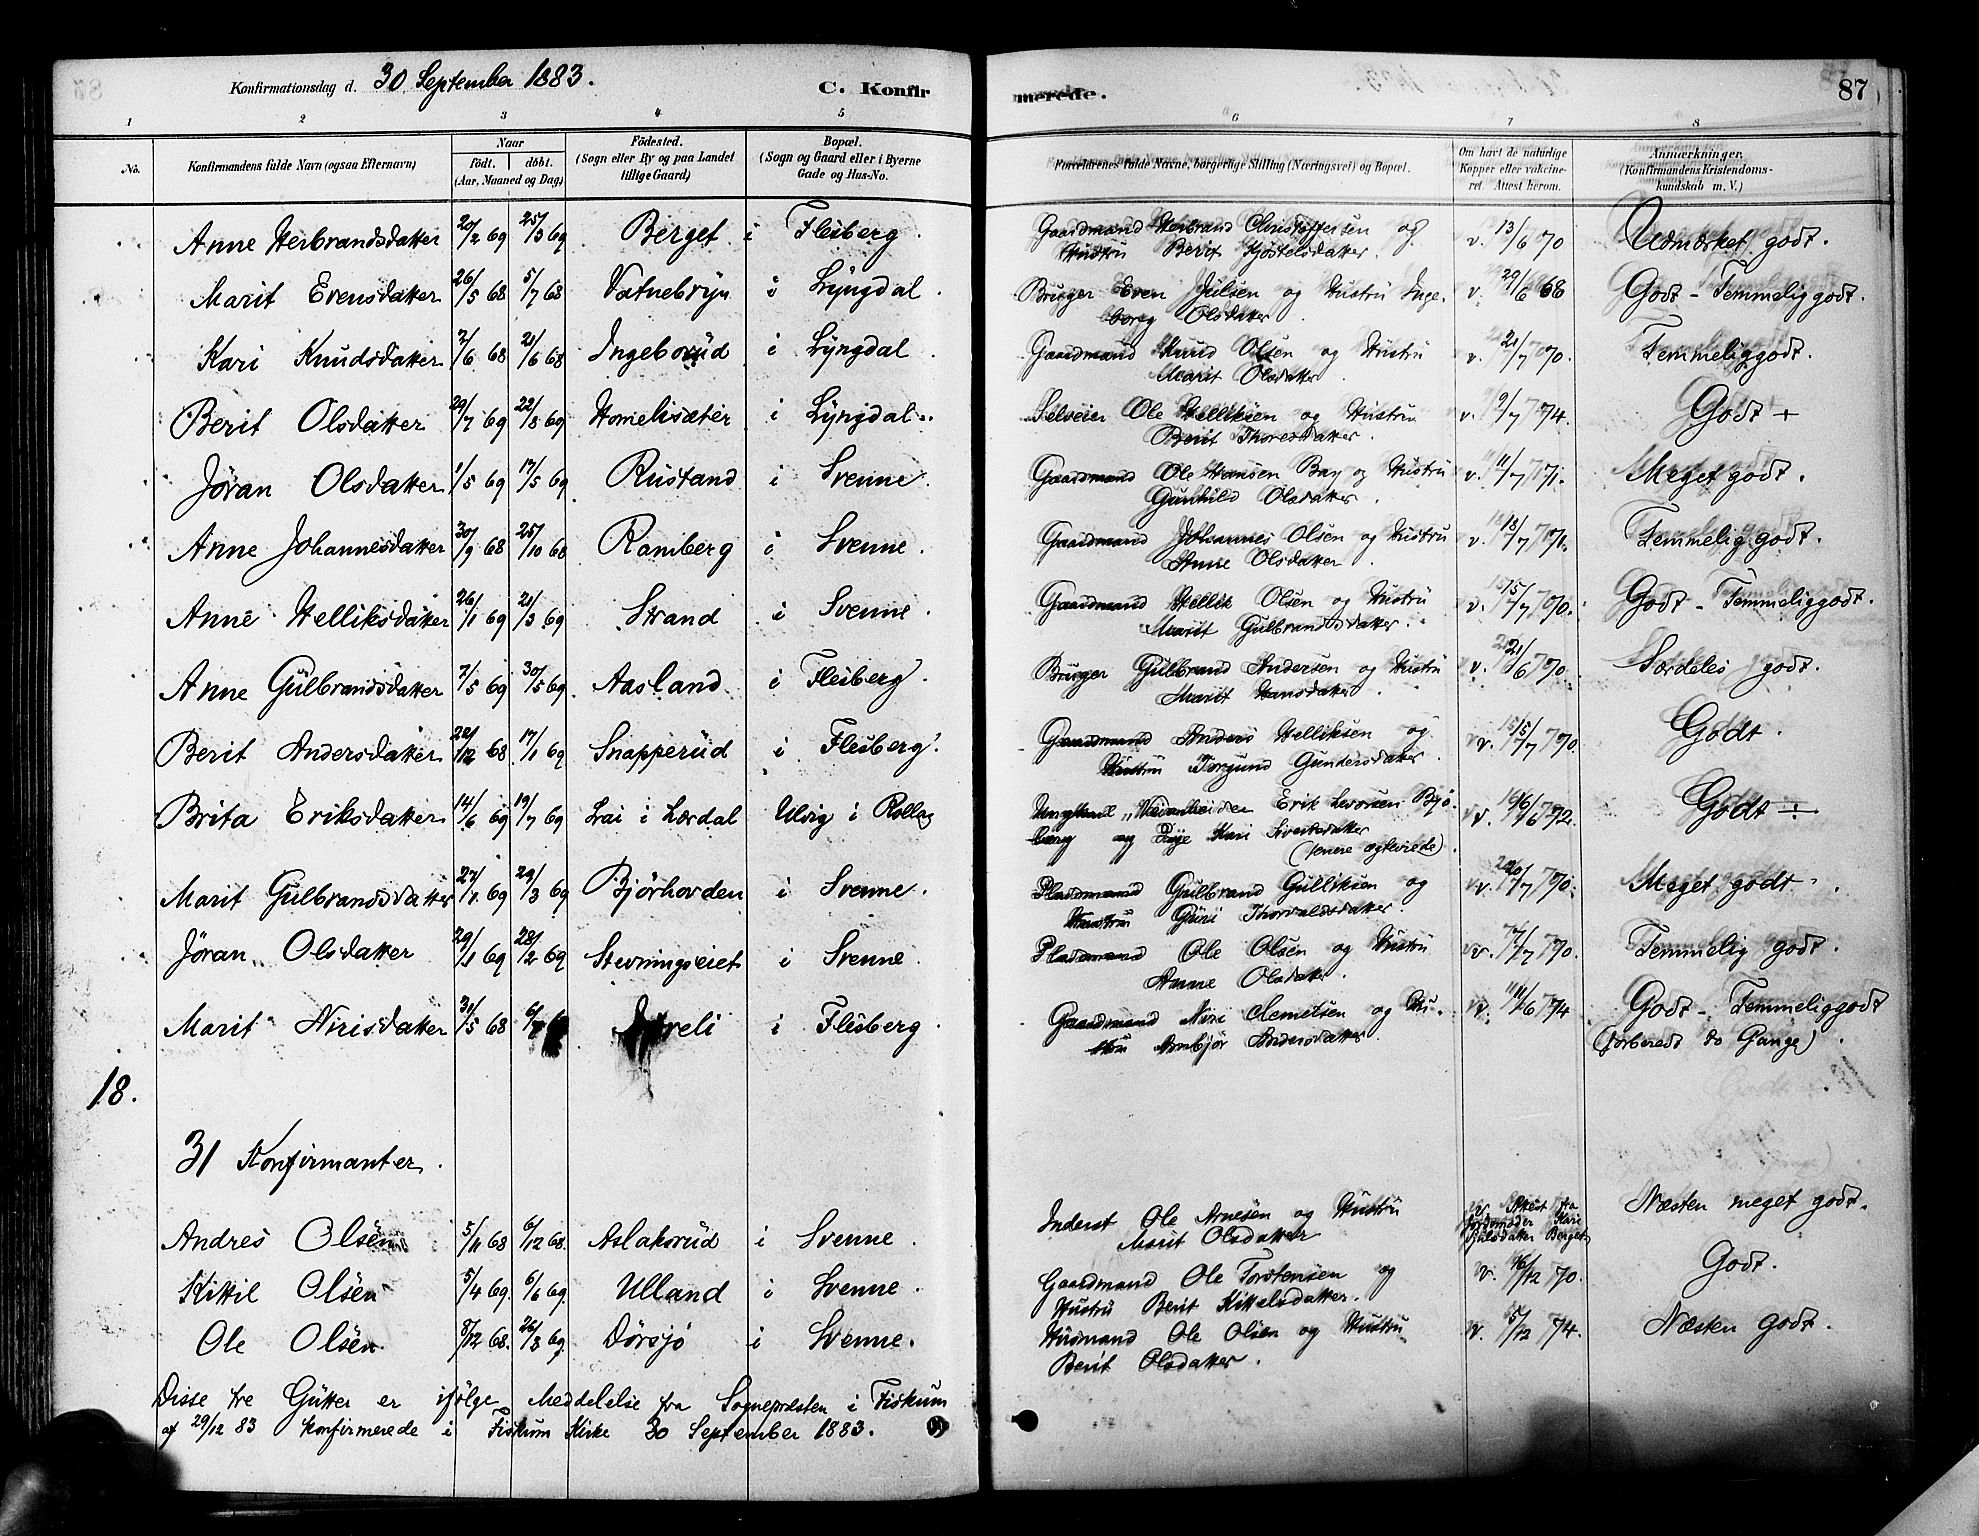 Konfirmationsdag d. 30 September 1883. C. Konfir merede. 87
1 2 3 4 5 6 7 8
No. Konfirmandens fulde Navn (ogsaa Efternavn) Naar født. døbt. (Aar, Maaned og Dag) Födested. (Sogn eller By og paa Landet tillige Gaard) Bopæl. (Sogn og Gaard eller i Byerne Gade og Hus-No. Forældrenes fulde Navne, borgerlige Stilling (Næringsvei) og Bopæl. Om havt de naturlige Kopper eller vakcineret. Attest herom. Anmærkninger. (Konfirmandens Kristendomskundskab m. V.)
Anne Herbrandsdatter 20/2 69 25/3 69 Berget i Flesberg. Gaardmand Herbrand Christoffersen og v. 13/6 70 Udmærket godt.
Hustru Berit Kjöstelsdatter.
Marit Evensdatter 26/5 68 5/7 68 Vatnebryn i Lyngdal. Bruger Even Julsen og Hustru Inge- v. 29/6 68 Godt - Temmelig godt.
borg Olsdatter.
Kari Knudsdatter 7/6 68 21/6 68 Ingeborud i Lyngdal. Gaardmand Knud Olsen og Hustru v. 21/7 70. Temmelig godt.
Marit Olsdatter.
Berit Olsdatter 29/7 69 22/8 69 Homelisæter i Lyngdal. Selveier Ole Helliksen og Hustru v. 9/7 74. Godt +
Berit Thoresdatter.
Jöran Olsdatter 1/5 69 17/5 69 Rustand i Svenne. Gaardmand Ole Hansen Bay og Hustru v. 11/7 71. Meget godt.
Gunhild Olsdatter.
Anne Johannesdatter 30/9 68 25/10 68 Ramberg i Svenne. Gaardmand Johannes Olsen og Hustru v. 18/7 71. Temmelig godt.
Anne Olsdatter.
Anne Helliksdatter 26/1 69 21/3 69 Strand i Svenne. Gaardmand Hellik Olsen og Hustru v. 15/7 70. Godt - Temmelig godt.
Marit Gulbrandsdatter.
Anne Gulbrandsdatter 7/5 69 30/5 69 Aasland i Flesberg. Bruger Gulbrand Andersen og Hustru v. 21/6 70. Særdeles godt.
Marit Hansdatter.
Berit Andersdatter 22/12 68 17/1 69 Snapperud i Flesberg. Gaardmand Anders Helliksen og v. 15/7 70. Godt.
Hustru Torgund Gundersdatter.
Brita Eriksdatter 14/6 69 19/7 69 Lai i Lærdal Ulvig i Rollag Ungkarl Erik Levorsen Bjö- v. 16/6 72. Godt ÷
berg og Pige Kari Sivertsdatter
(senere ægteviede).
Marit Gulbrandsdatter 27/1 69 29/3 69 Björhovden i Svenne. Pladsmand Gulbrand Gulliksen og v. 20/7 70. Meget godt.
Hustru Guri Thorvaldsdatter.
Jöran Olsdatter 29/1 69 28/2 69 Stevningseiet i Svenne. Pladsmand Ole Olsen og Hustru v. 7/7 70. Temmelig godt.
Anne Olsdatter.
Marit Nirisdatter 31/5 68 6/7 i Flesberg. Gaardmand Niri Clemetsen og Hu- v. 11/6 74 Godt - Temmelig godt
stru Ambjör Andersdatter. (forberedt to Gange).
18.
31 Konfirmanter.
Andres Olsen 5/11 68 6/12 68. Aslaksrud i Svenne. Inderst Ole Arnesen og Hustru v. Attest fra Næsten meget godt.
Marit Olsdatter Jordemoder Kari Berget
Kittil Olsen 5/4 69. 6/6 69. Ulland i Svenne. Gaardmand Ole Torstensen og v. 16/12 70. Godt.
Hustru Berit Kittelsdatter.
Ole Olsen 8/12 68. 26/3 69 Dörsjö i Svenne. Husmand Ole Olsen og Hustru v. 5/12 74. Næsten godt.
Berit Olsdatter.
Disse tre Gutter er ifölge Meddelelse fra Sognepresten i Fiskum
af 29/12 83 konfirmerede i Fiskum Kirke 30 September 1883.